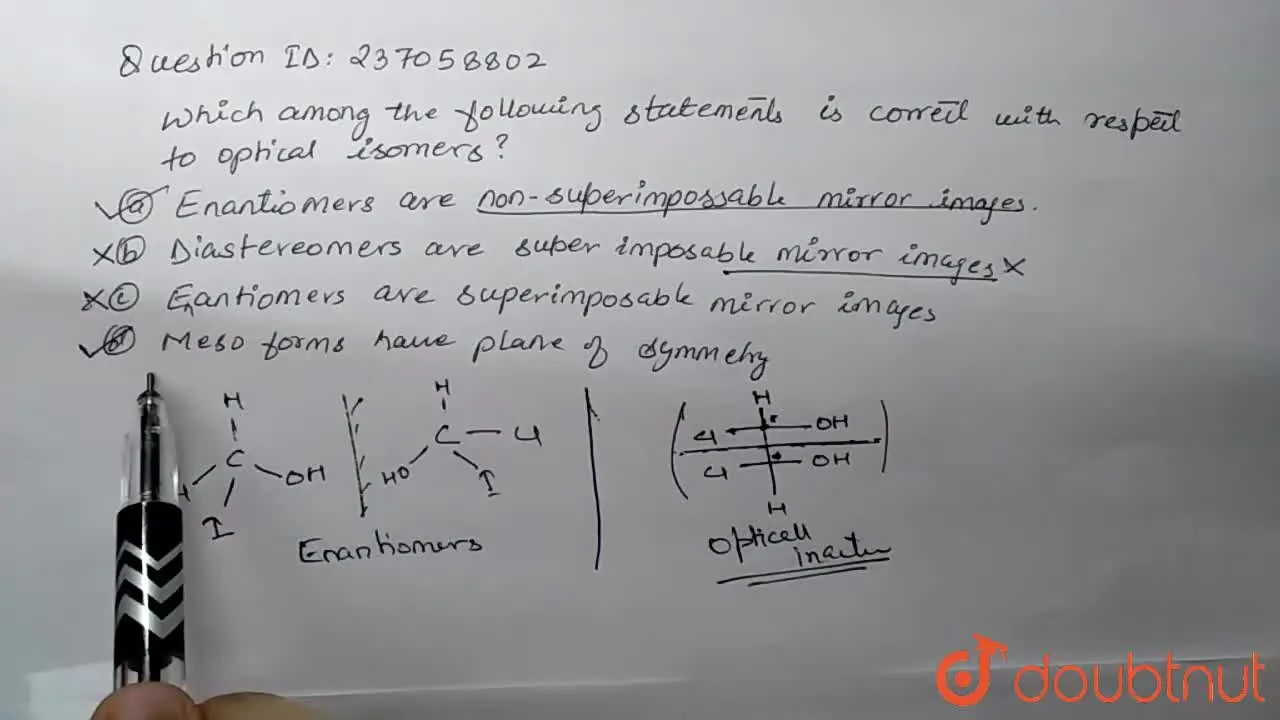 Question ID: 237058802
Which among the following statements is correct with respect
to optical isomers?
(a) Enantiomers are non-superimpossable mirror images.
(b) Diastereomers are super imposable mirror images x
(c) Enantiomers are superimposable mirror images
(d) Meso forms have plane of symmetry
H
C
OH
I
H
C
Cl
HO
I
Enantiomers
H
Cl OH
Cl OH
H
doubtnut